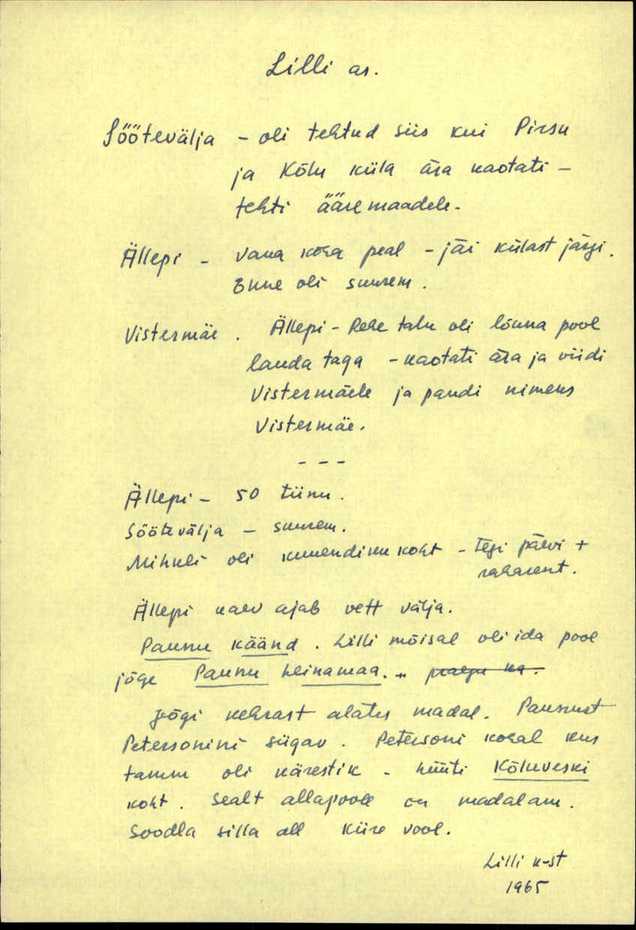 Lilli as.
Söötevälja - oli tehtud siis kui Pirsu
ja Kõlu küla ära kaotati -
tehti ääremaadele.
Ällepi - vana koha peal - jäi külast järgi.
Enne oli suurem.
Vistermäe. Ällepi - Rehe talu oli lõuna pool
lauda taga - kaotati ära ja viidi
Vistermäele ja pandi nimeks
Vistermäe.
- - -
Ällepi - 50 tiinu.
Söötevälja - suurem.
Mihkeli oli kuuendiku koht - tegi päevi +
raharent.
Ällepi kaev ajab vett välja.
Paunu käänd. Lilli mõisal oli ida pool
jõge Paunu heinamaa.
Jõgi kehrast alates madal. Paunust
Petersonini sügav. Petersoni kohal kus
tamm oli kärestik - hüüti Kõluveski
koht. Sealt allapoole on madalam.
Soodla silla all kiire vool.
Lilli k-st
1965